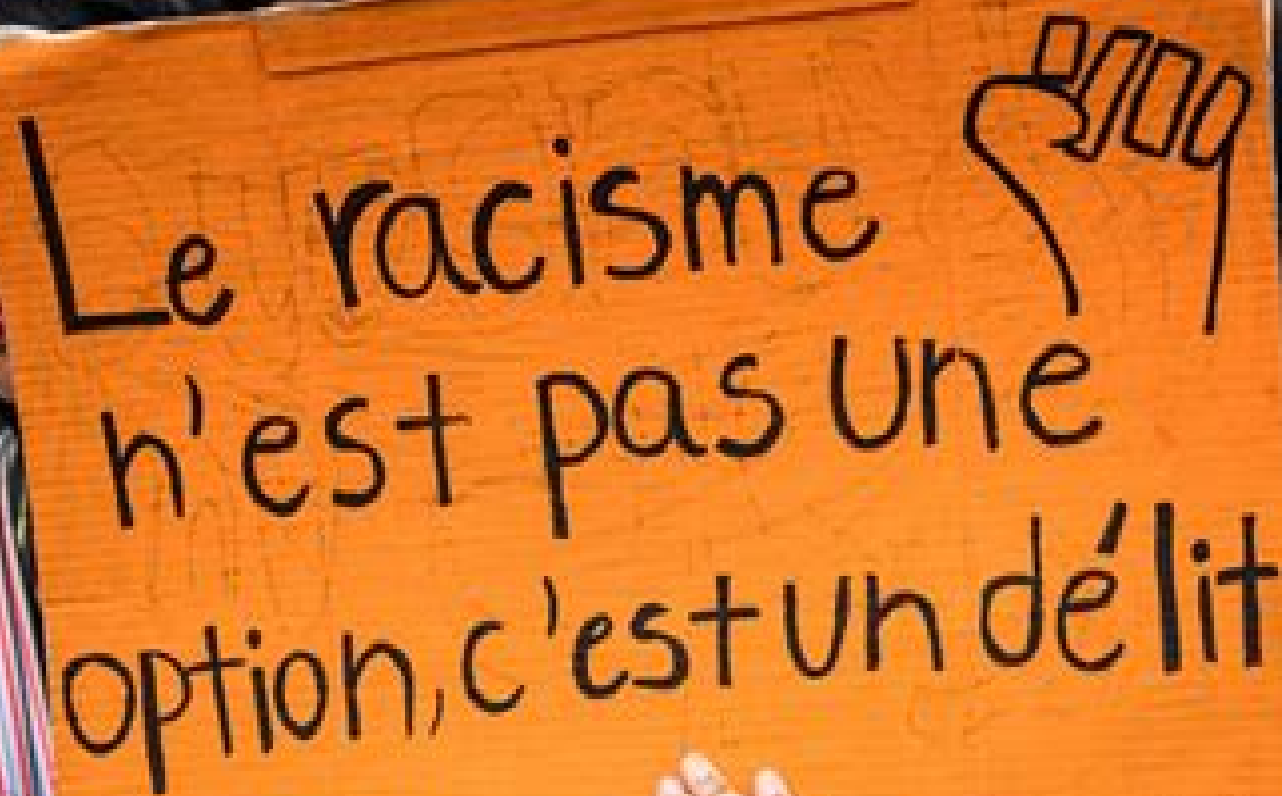 Le racisme
n'est pas une
option, c'est un délit